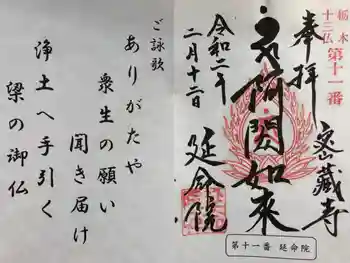 栃木
十三仏 第十一番
奉拝
密藏寺
阿閦如來
令和二年
二月十二日
延命院
第十一番 延命院
ご詠歌
ありがたや
衆生の願い
聞き届け
浄土へ手引く
梁の御仏